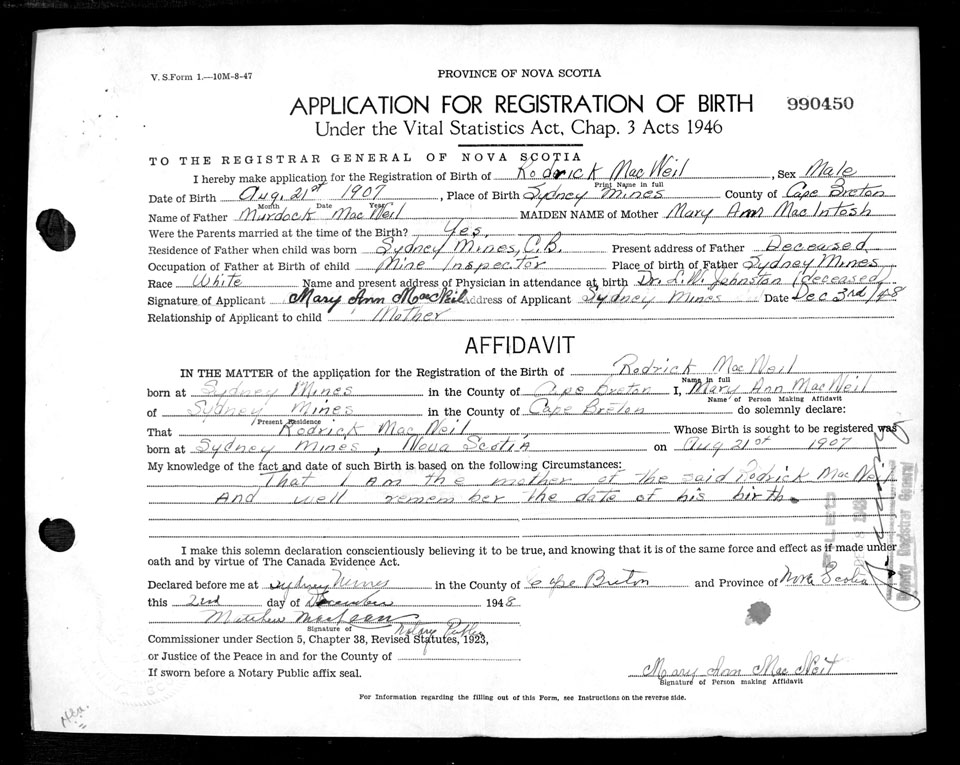 V. S. Form 1.—10M-8-47
PROVINCE OF NOVA SCOTIA
APPLICATION FOR REGISTRATION OF BIRTH 990450
Under the Vital Statistics Act, Chap. 3 Acts 1946
TO THE REGISTRAR GENERAL OF NOVA SCOTIA
I hereby make application for the Registration of Birth of Rodrick MacNeil, Sex Male
Print Name in full
Date of Birth Aug. 21st 1907, Place of Birth Sydney Mines County of Cape Breton
Month Date Year
Name of Father Murdock MacNeil MAIDEN NAME of Mother Mary Ann MacIntosh
Were the Parents married at the time of the Birth? Yes.
Residence of Father when child was born Sydney Mines, C.B. Present address of Father Deceased
Occupation of Father at Birth of child Mine Inspector Place of birth of Father Sydney Mines
Race White Name and present address of Physician in attendance at birth Dr. L.W. Johnston (deceased)
Signature of Applicant Mary Ann MacNeil Address of Applicant Sydney Mines Date Dec 3rd/48
Relationship of Applicant to child Mother
AFFIDAVIT
IN THE MATTER of the application for the Registration of the Birth of Rodrick MacNeil
Name in full
born at Sydney Mines in the County of Cape Breton I, Mary Ann MacNeil
Name of Person Making Affidavit
of Sydney Mines in the County of Cape Breton do solemnly declare:
Present Residence
That Rodrick MacNeil Whose Birth is sought to be registered was
born at Sydney Mines, Nova Scotia on Aug 21st 1907
My knowledge of the fact and date of such Birth is based on the following Circumstances:
That I Am the mother of the said Rodrick MacNeil
And well remember the date of his birth.
I make this solemn declaration conscientiously believing it to be true, and knowing that it is of the same force and effect as if made under
oath and by virtue of The Canada Evidence Act.
Declared before me at Sydney Mines in the County of Cape Breton and Province of Nova Scotia
this 2nd day of December 1948
Matthew
Signature of Notary Public
Commissioner under Section 5, Chapter 38, Revised Statutes, 1923,
or Justice of the Peace in and for the County of
If sworn before a Notary Public affix seal.
Mary Ann MacNeil
Signature of Person making Affidavit
For Information regarding the filling out of this Form, see Instructions on the reverse side.
Deputy Registrar General